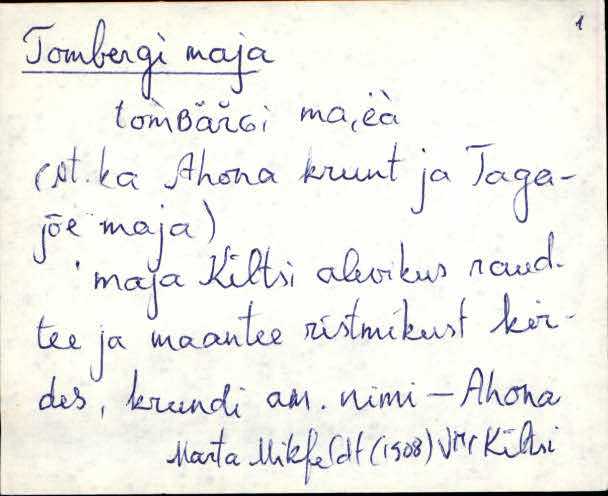 1
Tombergi maja
tom̀ʙäʀɢi ma‚ëà
(vt. ka Ahona krunt ja Taga-
jõe maja)
maja Kiltsi alevikus raud-
tee ja maantee ristmikust kir-
des, krundi am. nimi — Ahona
Marta Mikfeldt (1908) VMr Kiltsi